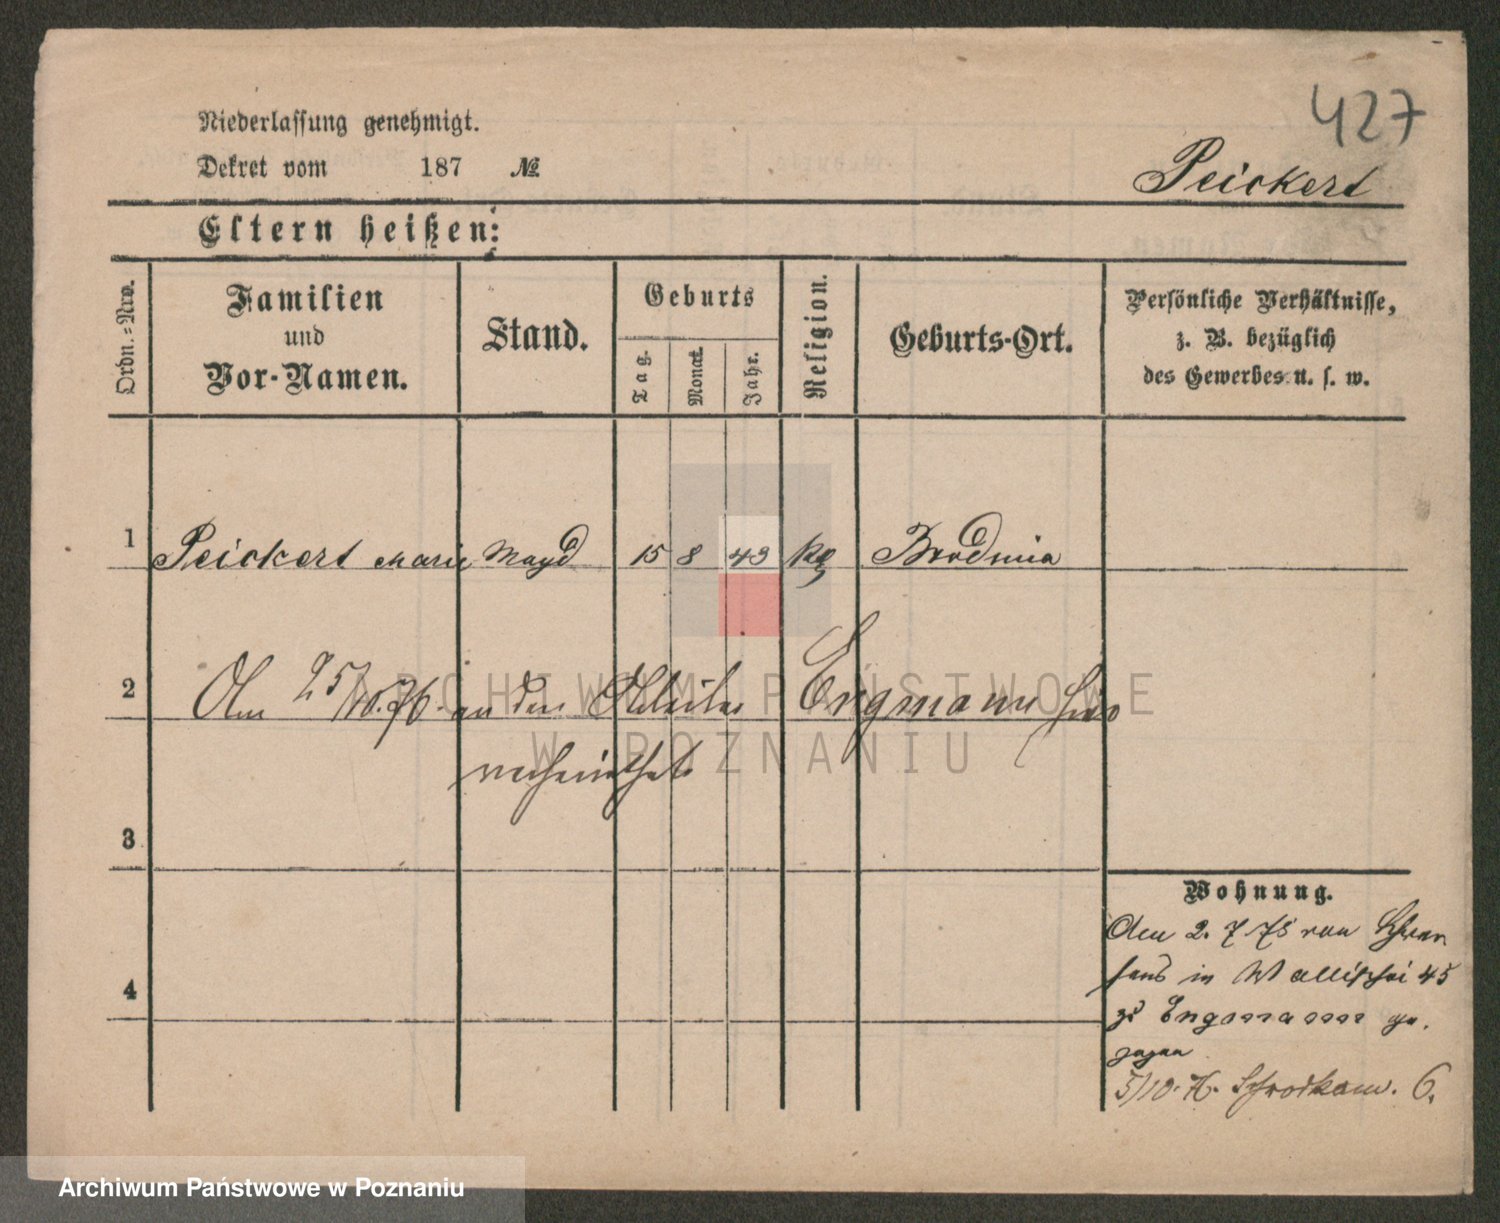 427
Niederlassung genehmigt.
Dekret vom 187 №
Peickert
Eltern heißen:
Ordn.=Nro.
Familien
und
Vor-Namen.
Stand.
Geburts
Tag.
Monat.
Jahr.
Religion.
Geburts-Ort.
Persönliche Verhältnisse,
z. B. bezüglich
des Gewerbes u. s. w.
1 Peickert Marie Magd 15 8 49 kg Brodnia
2 Am 25/10.76. an den Engmann hier
verheirathet
3
4
Wohnung.
Am 2. 7 75 von
in Wallischei 45
zu Engmann ge.
zogen
5/10. 76. Schrodkam. 6.
ARCHIWUM PAŃSTWOWE
W POZNANIU
Archiwum Państwowe w Poznaniu